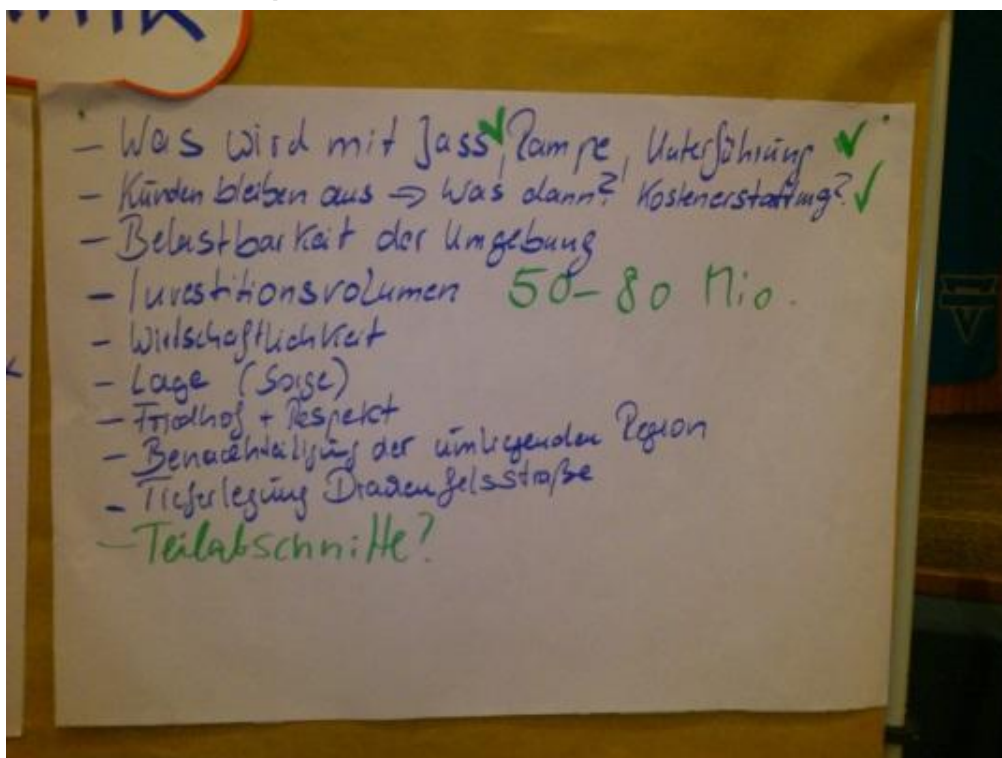 - Was wird mit Jass, Rampe, Unterführung
- Kunden bleiben aus => Was dann? Kostenerstattung?
- Belastbarkeit der Umgebung
- Investitionsvolumen 50-80 Mio.
- Wirtschaftlichkeit
- Lage (Sorge)
- Friedhof + Respekt
- Benachteiligung der umliegenden Region
- Tieferlegung Drachenfelsstraße
- Teilabschnitte?